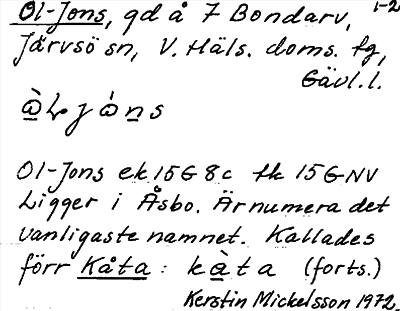 Ol-Jons, gd å 7 Bondarv, 1-2
Järvsö sn, V. Häls. doms. fg,
Gävl. l.
Ol-Jons ek 15G8c tk 15GNV
Ligger i Åsbo. Är numera det
vanligaste namnet. Kallades
förr Kåta: kàta (forts.)
Kerstin Mickelsson 1972.